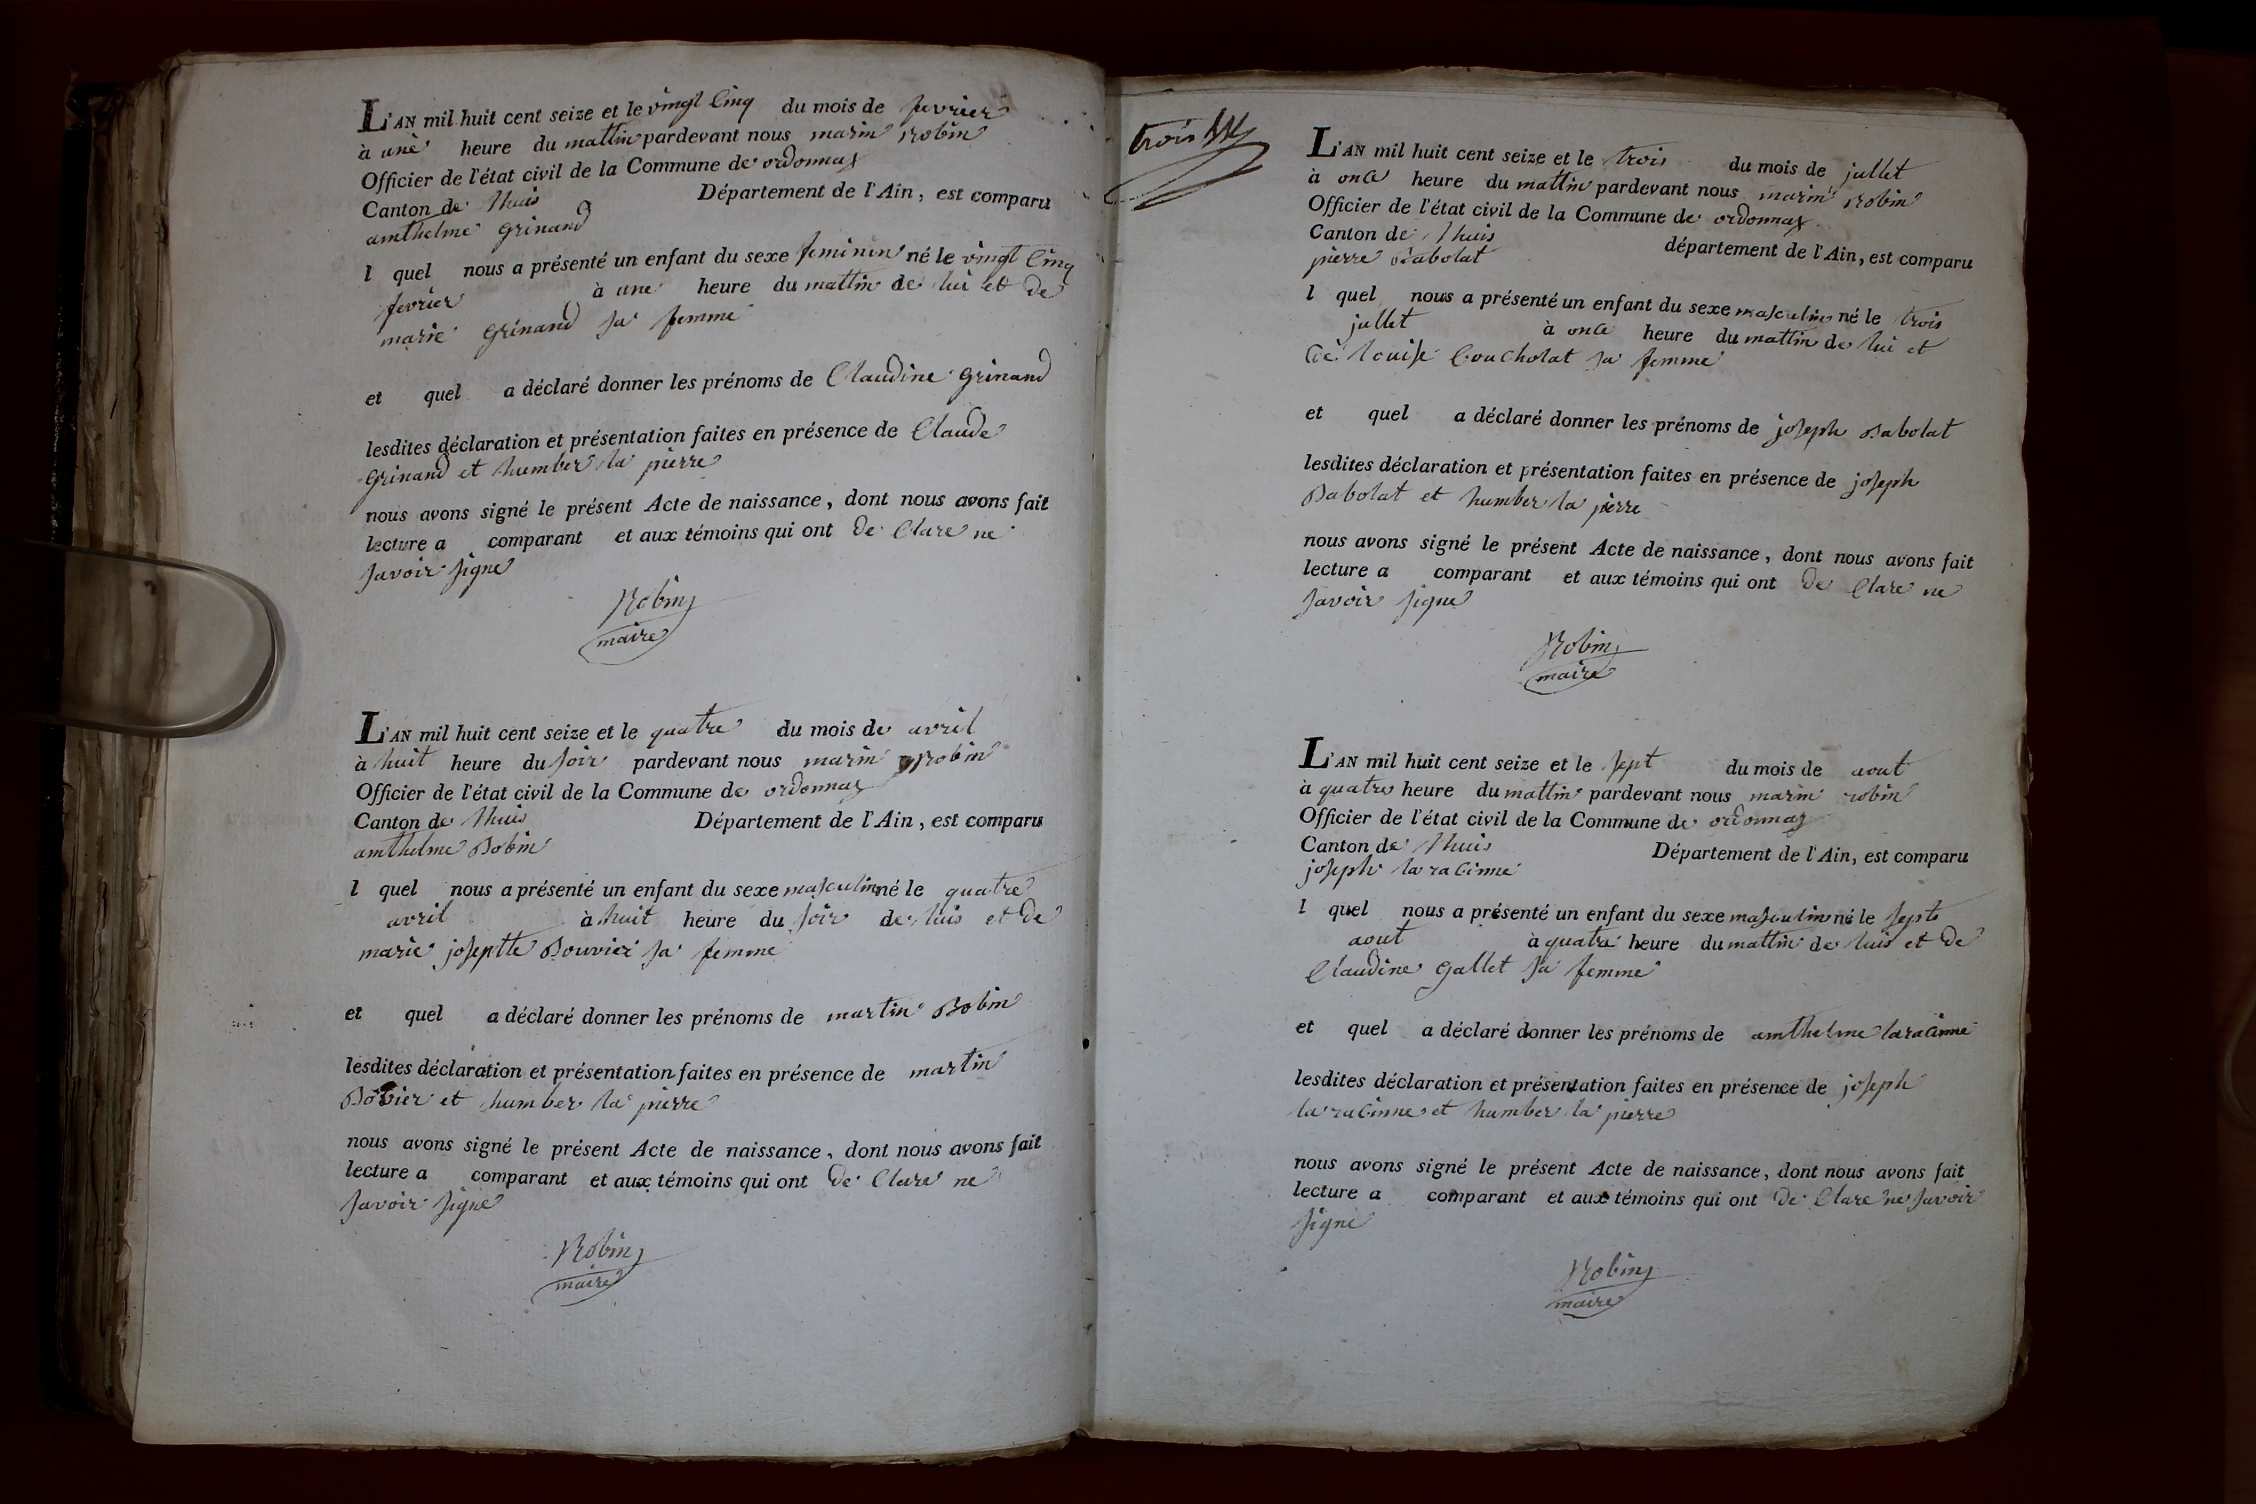 L'AN mil huit cent seize et le vingt Cinq du mois de fevrier
à une heure du mattin pardevant nous marin robin
Officier de l'état civil de la Commune de ordonnaz
Canton de lhuis Département de l'Ain, est comparu
amthelme grinand
l quel nous a présenté un enfant du sexe feminin né le vingt Cinq
fevrier à une heure du mattin de lui et de
marie grinand sa femme
et quel a déclaré donner les prénoms de Claudine grinand
lesdites déclaration et présentation faites en présence de Claude
grinand et humber la pierre
nous avons signé le présent Acte de naissance, dont nous avons fait
lecture a comparant et aux témoins qui ont de Clare ne
savoir signe
Robin
maire
L'AN mil huit cent seize et le quatre du mois de avril
à huit heure du soir pardevant nous marin robin
Officier de l'état civil de la Commune de ordonnaz
Canton de lhuis Département de l'Ain, est comparu
amthelme Bobin
l quel nous a présenté un enfant du sexe masculin né le quatre
avril à huit heure du soir de luis et de
marie josephte Bouvier sa femme
et quel a déclaré donner les prénoms de martin Bobin
lesdites déclaration et présentation faites en présence de martin
et humber la pierre
nous avons signé le présent Acte de naissance, dont nous avons fait
lecture a comparant et aux témoins qui ont de Clare ne
savoir signe
Robin
maire
trois
L'AN mil huit cent seize et le trois du mois de jullet
à once heure du mattin pardevant nous marin robin
Officier de l'état civil de la Commune de ordonnaz
Canton de lhuis département de l'Ain, est comparu
pierre Babolat
l quel nous a présenté un enfant du sexe masculin né le trois
jullet à once heure du mattin de lui et
de louise Coucholat sa femme
et quel a déclaré donner les prénoms de joseph Babolat
lesdites déclaration et présentation faites en présence de joseph
Babolat et humber la pierre
nous avons signé le présent Acte de naissance, dont nous avons fait
lecture a comparant et aux témoins qui ont de Clare ne
savoir signe
Robin
maire
L'AN mil huit cent seize et le sept du mois de aout
à quatre heure du mattin pardevant nous marin robin
Officier de l'état civil de la Commune de ordonnaz
Canton de lhuis Département de l'Ain, est comparu
joseph la racinne
l quel nous a présenté un enfant du sexe masculin né le sept
aout à quatre heure du mattin de luis et de
Claudine gallet sa femme
et quel a déclaré donner les prénoms de amthelme laracinne
lesdites déclaration et présentation faites en présence de joseph
la racinne et humber la pierre
nous avons signé le présent Acte de naissance, dont nous avons fait
lecture a comparant et aux témoins qui ont de Clare ne savoir
signe
Robin
maire